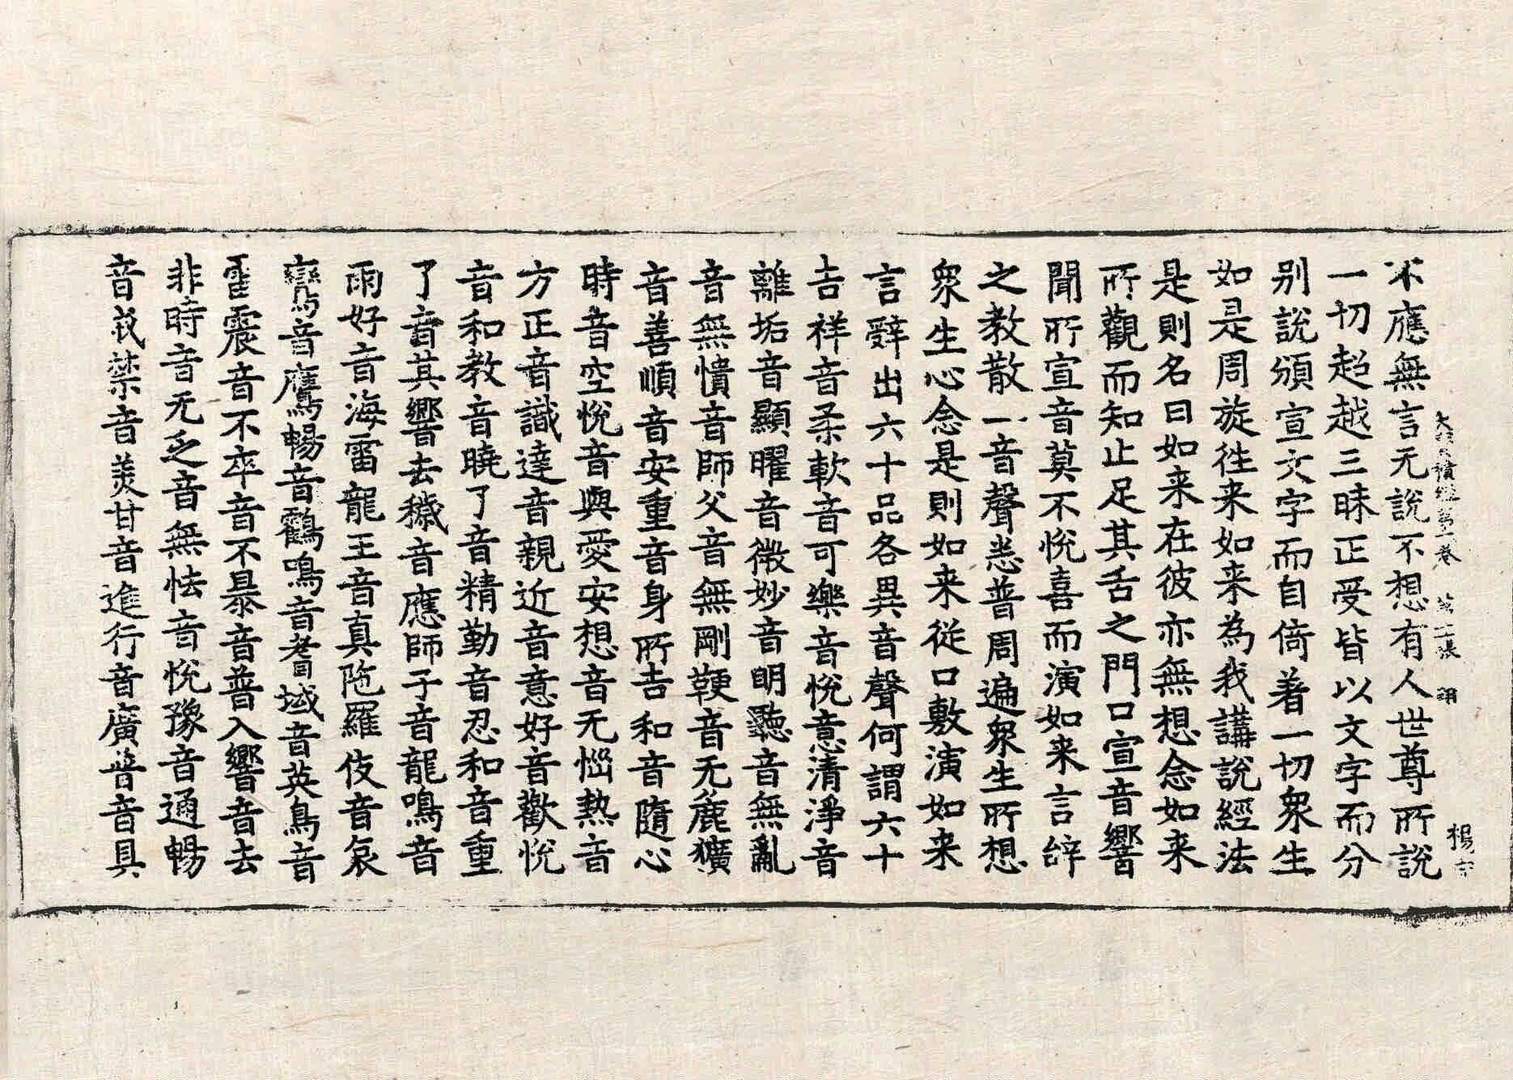 不應無言无說不想有人世尊所說
大寶積經第十卷 第二張 翔
楊宗
一切超越三昧正受皆以文字而分
别說頒宣文字而自倚着一切衆生
如是周旋徃来如来為我講說經法
是則名曰如来在彼亦無想念如来
所觀而知止足其舌之門口宣音響
聞所宣音莫不悅喜而演如来言辝
之教散一音聲悉普周遍衆生所想
衆生心念是則如来從口敷演如来
言辭出六十品各異音聲何謂六十
吉祥音柔軟音可樂音悅意清淨音
離垢音顯曜音微妙音明聽音無亂
音無憒音師父音無剛鞕音无麁獷
音善順音安重音身所吉和音隨心
時音空悅音與愛安想音无惱熱音
方正音識達音親近音意好音歡悅
音和教音曉了音精勤音忍和音重
了音其響去穢音應師子音龍鳴音
雨好音海雷龍王音真陁羅伎音哀
鸞音鷹暢音鶴鳴音耆域音英鳥音
雷震音不卒音不暴音普入響音去
非時音无乏音無怯音悅豫音通暢
音戒禁音美甘音進行音廣普音具